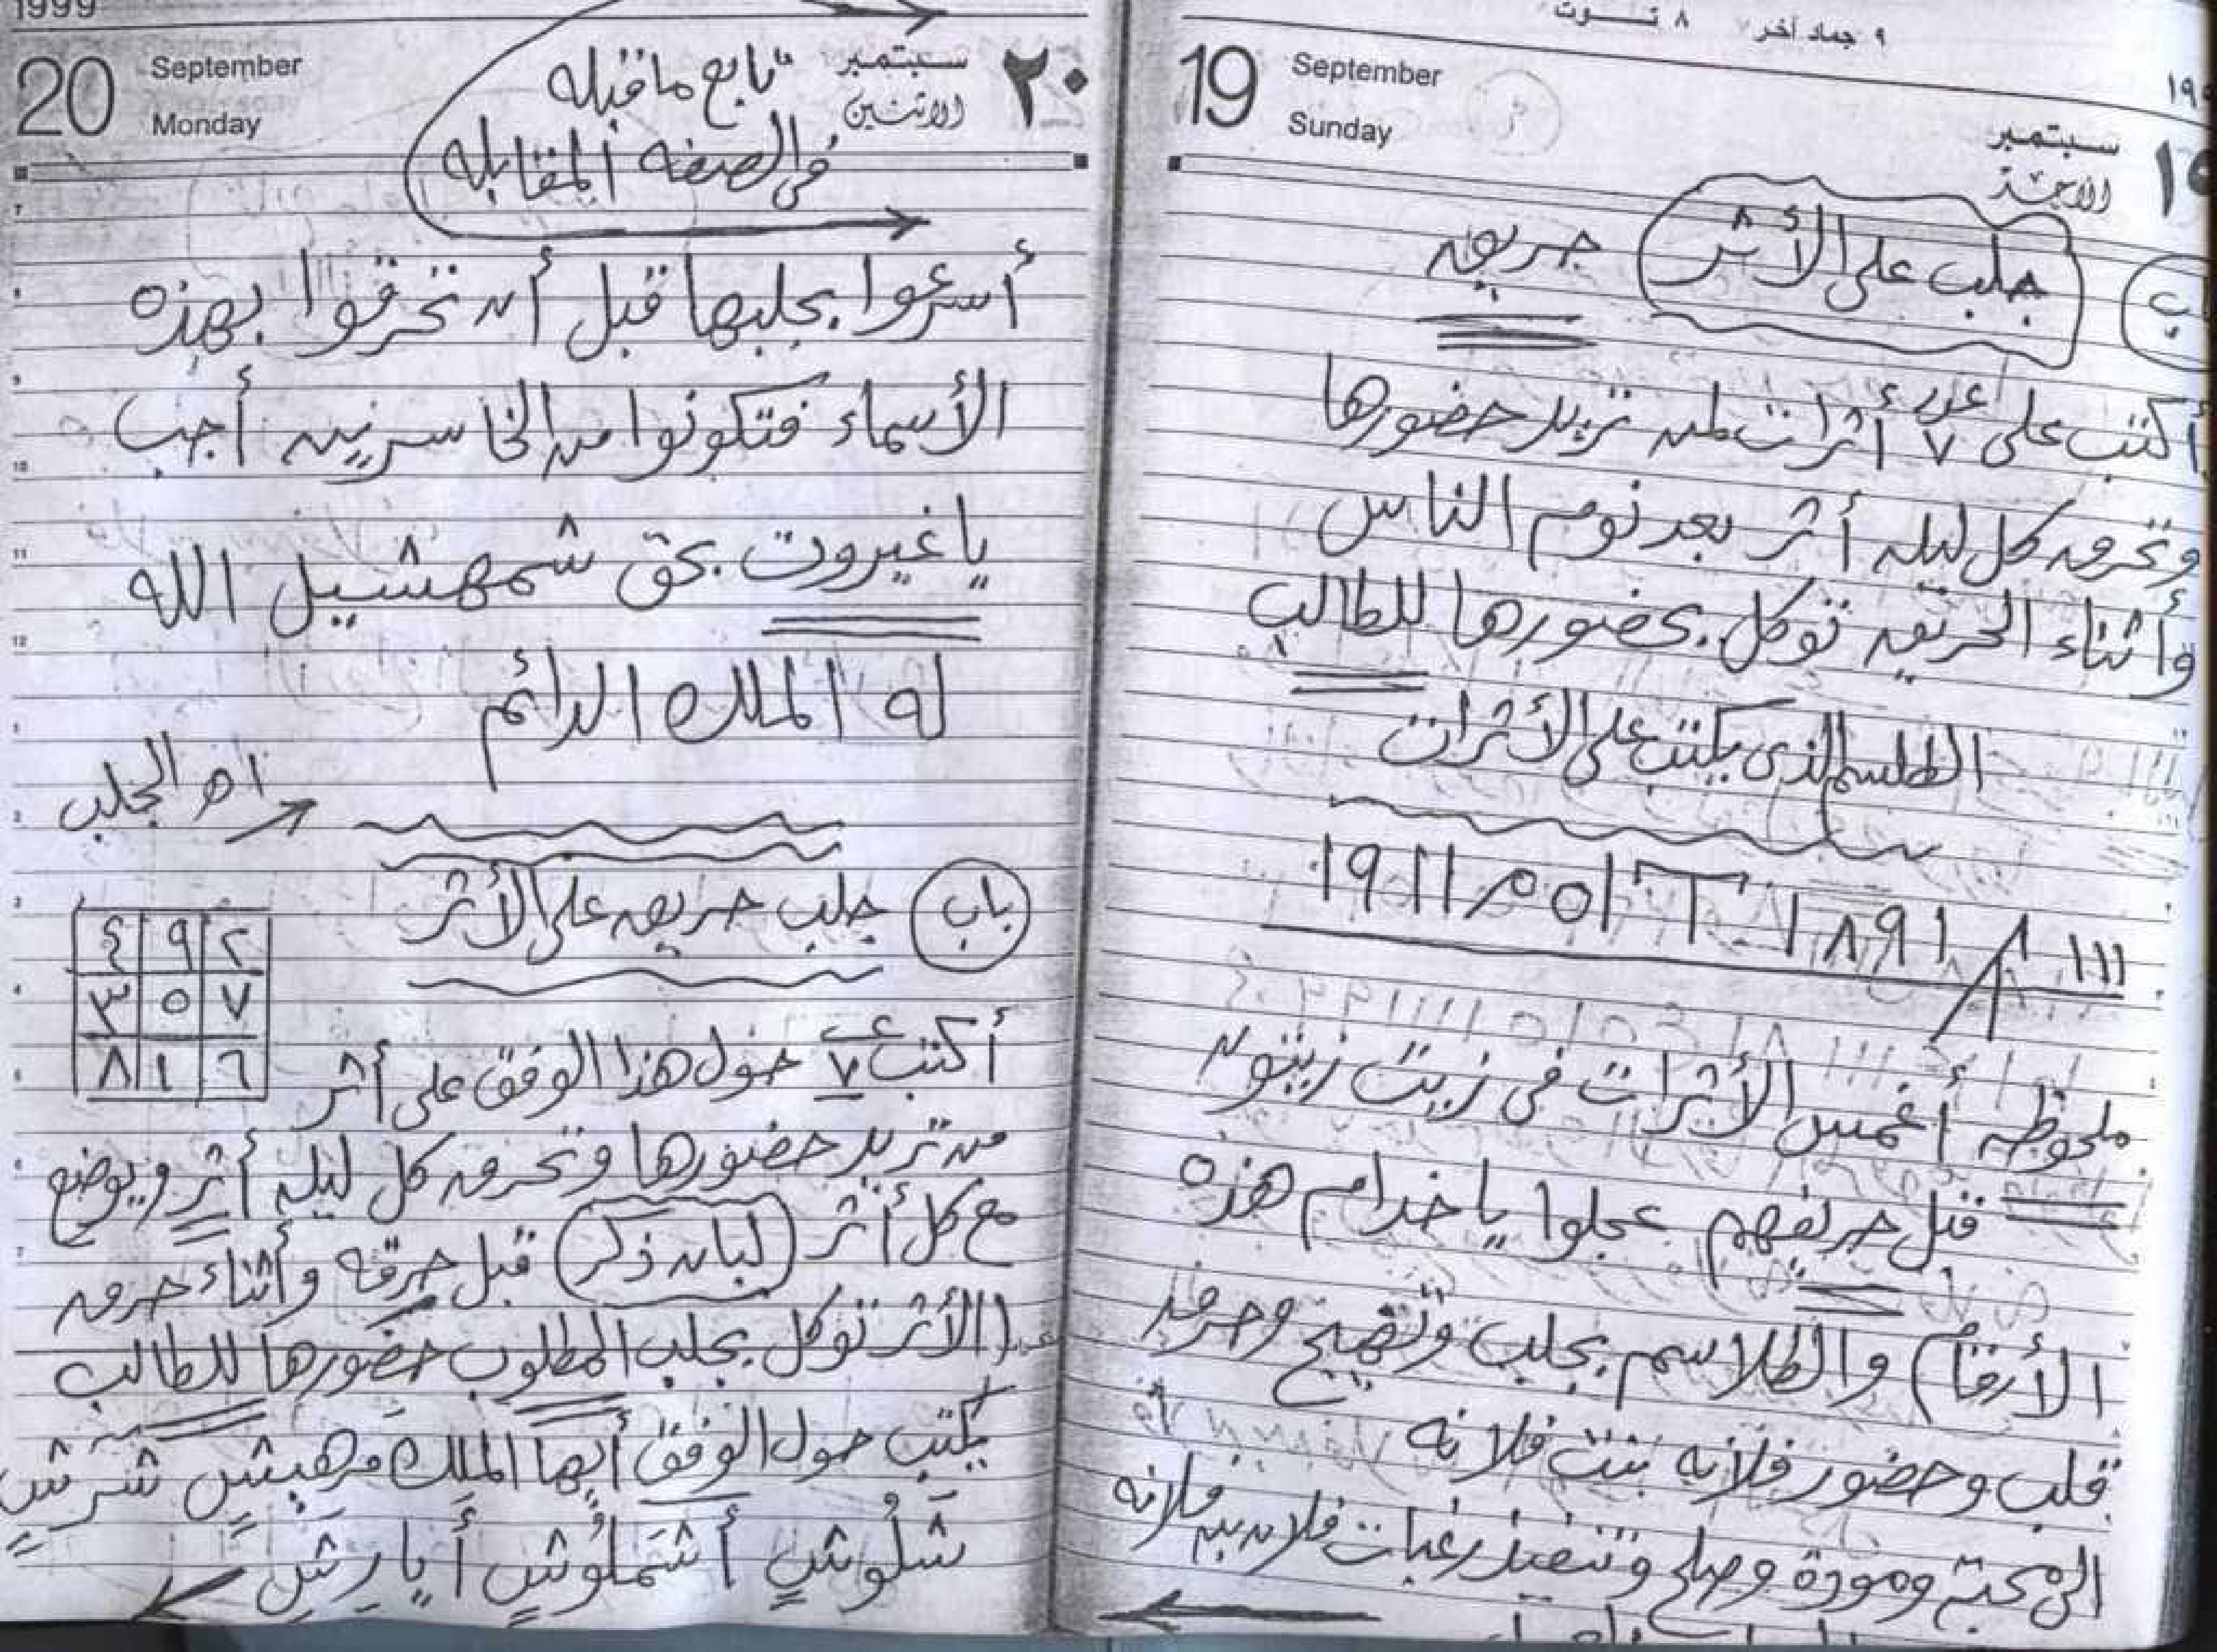 ٩ جماد آخر ٨ تـــوت
19 September
Sunday
سبتمبر
الأحد
جلب على الأثر حريقه
أكتب على عدد ٧ أثرات لمن تريد حضورها
وتحرق كل ليله أثر بعد نوم الناس
وأثناء الحريقه توكل بحضورها للطالب
الطلسم الذى يكتب على الأثرات
ملحوظه أغمس الأثرات فى زيت زيتون
قبل حريقهم عجلوا يا خدام هذه
الأرقام والطلاسم بجلب وتهيج وحرق
قلب وحضور فلانه بنت فلانه
الى محبة ومودة وصلح وتنفيذ رغبات فلان بن فلانه
1999
20 September
Monday
٢٠ سبتمبر
الاثنين
تابع ما قبله
فى الصفحه المقابله
أسرعوا بجلبها قبل أن تحرقوا بهذه
الأسماء فتكونوا من الخاسرين أجب
يا غيروت بحق شمهشيل الله
له الملك الدائم
اهـ الجلب
باب جلب حريقه على الأثر
٤ ٩ ٢
٣ ٥ ٧
٨ ١ ٦
أكتب ٧ حول هذا الوفق على أثر
من تريد حضورها وتحرق كل ليله أثر ويوضع
مع كل أثر (لبان ذكر) قبل حرقه وأثناء حرق
الأثر توكل بجلب المطلوب حضورها للطالب
يكتب حول الوفق أيها الملك مرهبش شرش
شلوش أشملوش أيارش
7
8
9
10
11
12
1
2
3
4
5
6
7